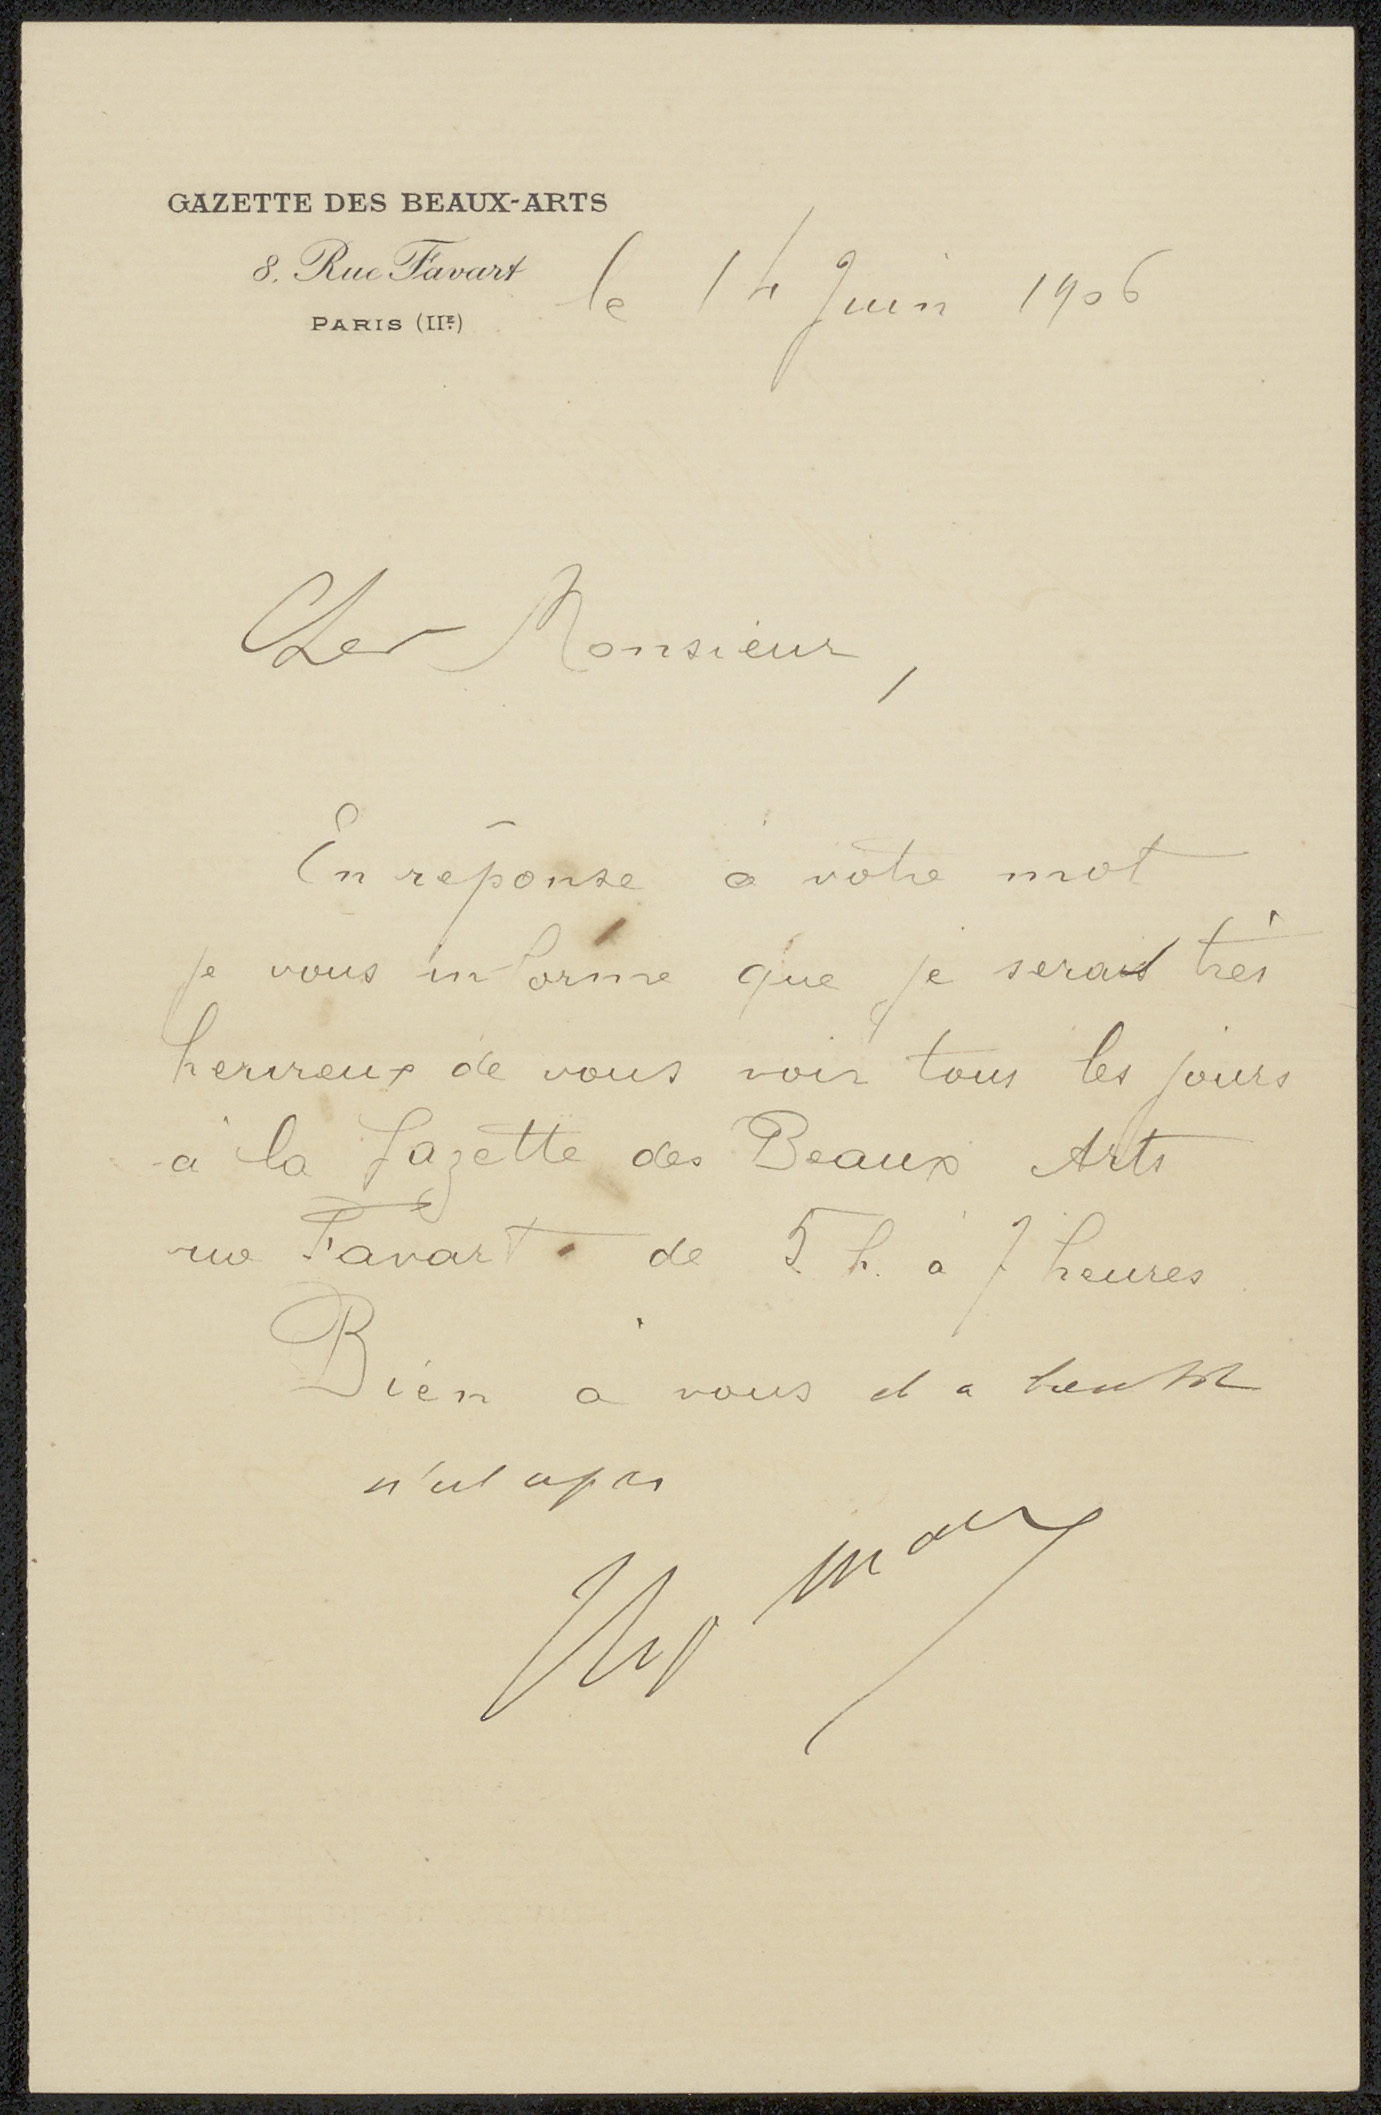 GAZETTE DES BEAUX-ARTS
8, Rue Favart
PARIS (IIE)
le 14 Juin 1906
Cher Monsieur,
En réponse à votre mot
je vous informe que je serais très
heureux de vous voir tous les jours
à la Gazette des Beaux Arts
rue Favart de 5 h. à 7 heures
Bien à vous et a bientot
n'est ce pas